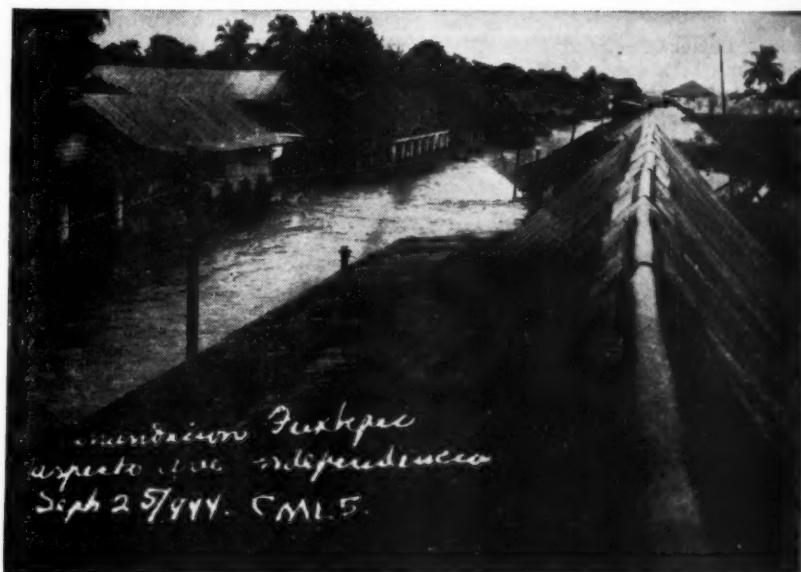 inundacion Tuxtepec
aspecto ave independencia
Sept 25/944. CML5.